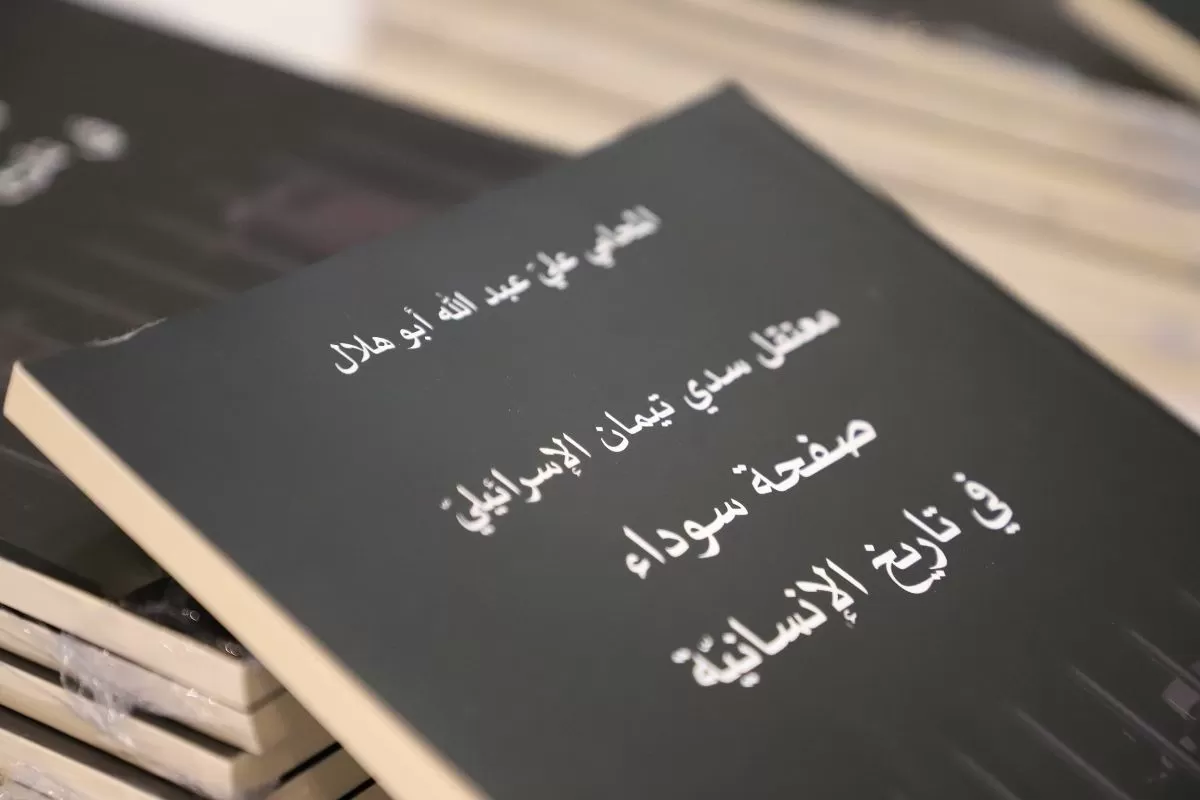 المحامي عليّ عبد الله أبو هلال
معتقل سدي تيمان الإسرائيليّ
صفحة سوداء
في تاريخ الإنسانيّة